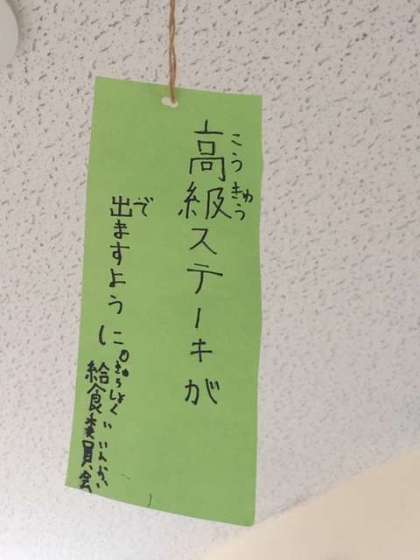 高級ステーキが
こうきゅう
出ますように。
で
給食委員会
きゅうしょくいいんかい